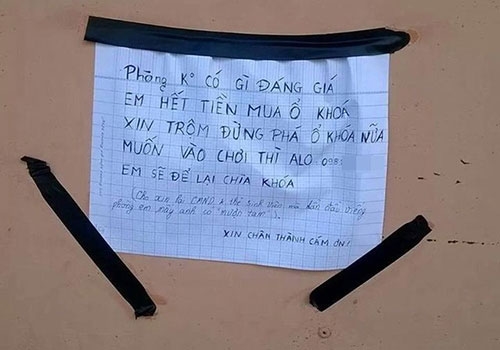 Phòng K° CÓ GÌ ĐÁNG GIÁ
EM HẾT TIỀN MUA Ổ KHOÁ
XIN TRỘM ĐỪNG PHÁ Ổ KHÓA NỮA
MUỐN VÀO CHƠI THÌ ALO 098
EM SẼ ĐỂ LẠI CHÌA KHÓA
(Cho xin lại CMND, k thẻ sinh viên, mà
phòng em này anh có "nước tắm").
XIN CHÂN THÀNH CẢM ƠN!